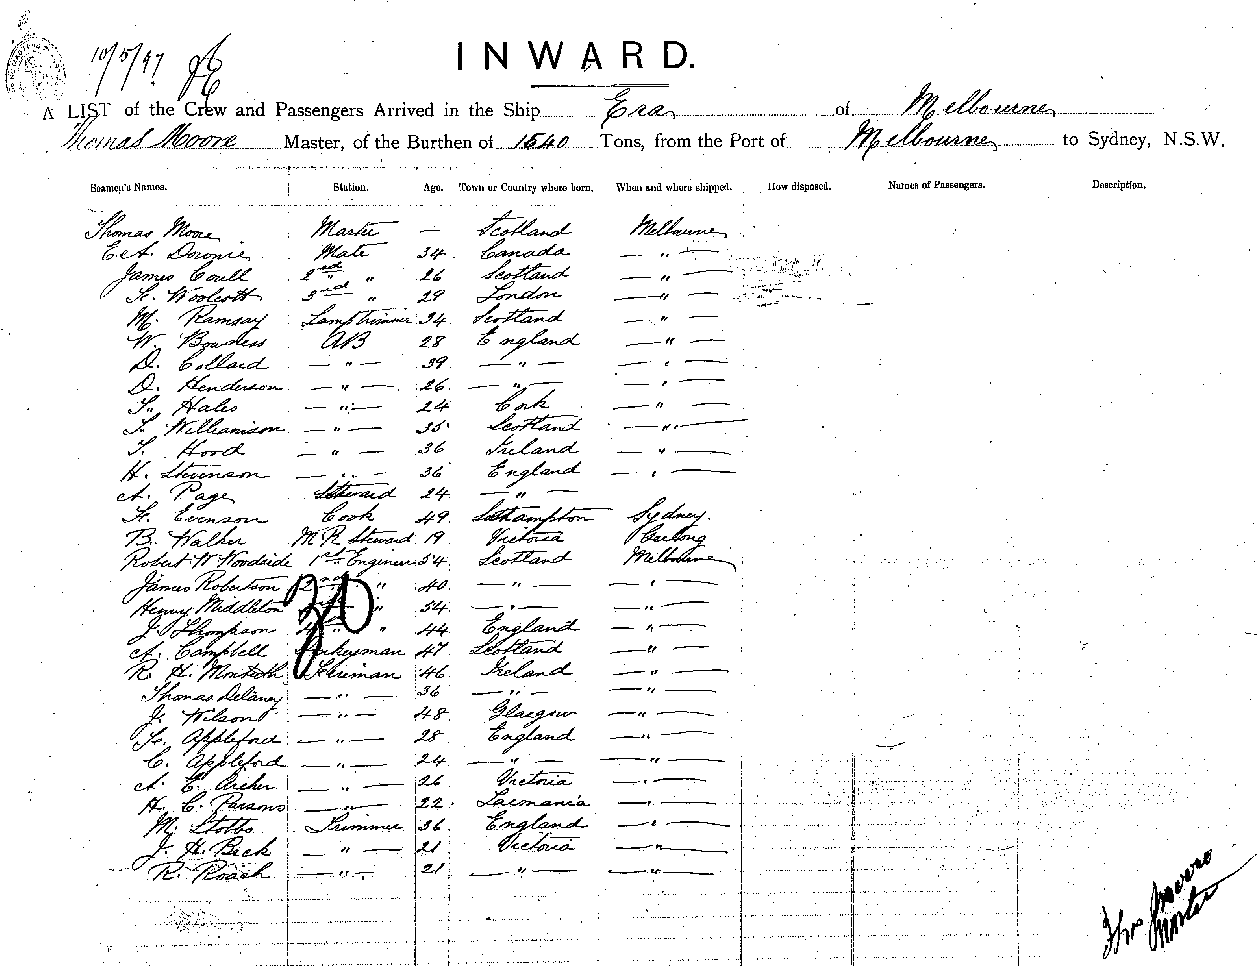 10/5/97
INWARD.
A LIST of the Crew and Passengers Arrived in the Ship Era of Melbourne
Thomas Moore Master, of the Burthen of 1540 Tons, from the Port of Melbourne to Sydney, N.S.W.
Seamen's Names. Station. Age. Town or Country where born. When and where shipped. How disposed. Names of Passengers. Description.
Thomas Moore Master — Scotland Melbourne
E. A. Downie Mate 34 Canada — " —
James Coull 2nd " 26 Scotland — " —
Woolcott 3rd " 29 London — " —
M. Ramsay Lamptrimmer 34 Scotland — " —
W. Bowdess AB 28 England — " —
D. Collard — " — 39 — " — — " —
D. Henderson — " — 26 — " — — " —
Hales — " — 24 Cork — " —
Williamson — " — 35 Scotland — " —
Hood — " — 36 Ireland — " —
H. Stevenson — " — 36 England — " —
A. Page Steward 24 — " —
Evenson Cook 49 Sthampton Sydney.
B. Walker M R Steward 19 Victoria Geelong
Robert W Woodside 1st Engineer 54 Scotland Melbourne
James Robertson 2nd " 40 — " — — " —
Henry Middleton " 54 — " — — " —
J. Thompson 4th " 44 England — " —
A. Campbell 47 Scotland — " —
R. H. Monteith Fireman 46 Ireland — " —
Thomas Delaney — " — 36 — " — — " —
J. Wilson — " — 48 Glasgow — " —
Appleford — " — 28 England — " —
C. Appleford — " — 24 — " — — " —
A. E. Archer — " — 26 Victoria — " —
H. C. Parsons — " — 22 Tasmania — " —
M. Stobbs Trimmer 36 England — " —
J. H. Beck — " — 21 Victoria — " —
R. Roach — " — 21 — " — — " —
30
Thos Moore
Master